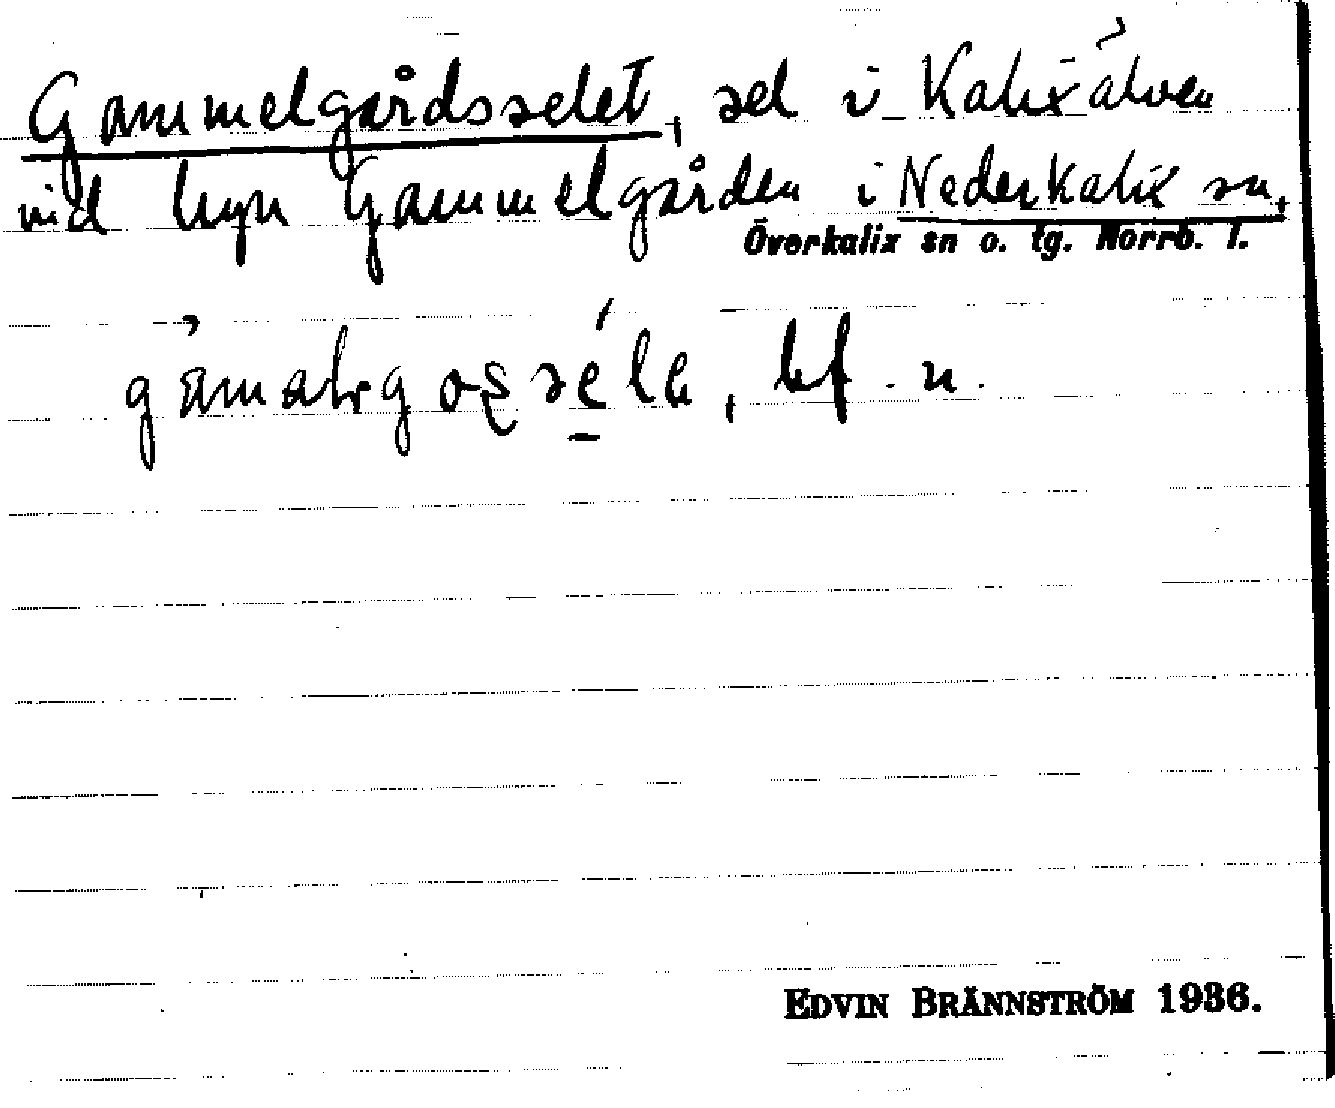 Gammelgårdsselet, sel i Kalixälven
vid byn Gammelgården i Nederkalix sn,
Överkalix sn o. tg. Norrb. l.
bf. n.
EDVIN BRÄNNSTRÖM 1936.